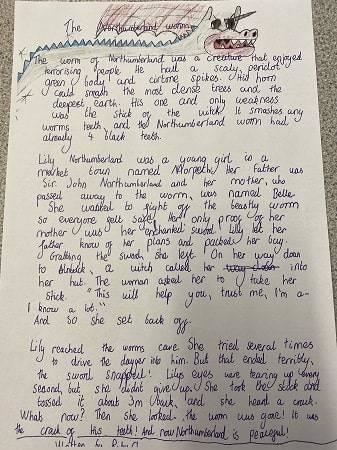 The Northumberland worm
The worm of Northumberland was a creature that enjoyed
terrorising people. He had a scaly, peridot
green body and citrine spikes. His horn
could smash the most dense trees and the
deepest earth. His one and only weakness
was the stick of the witch. It smashes any
worms teeth, and the Northumberland worm had
already 4 black teeth.
Lily Northumberland was a young girl in a
market town named Morpeth. Her Father was
Sir. John Northumberland and her mother, who
passed away to the worm, was named Belle.
She wanted to fight off the beastly worm
so everyone felt safe. Her only proof of her
mother was her enchanted sword. Lily let her
father know of her plans and packed her bag.
Grabbing the sword, she left. On her way down
to, a witch called her into
her hut. The woman asked her to take her
stick. "This will help you, trust me, I'm a-
I know a lot."
And so she set back off.
Lily reached the worms cave. She tried several times
to drive the dagger into him. But that ended terribly,
the sword snapped! Lilys eyes were tearing up every
second, but she didnt give up. She took the stick and
tossed it about 3m back, and she heard a crack.
Whats now? Then she looked. The worm was gone! It was
the crack of his teeth! And now Northumberland is peaceful!
Written by